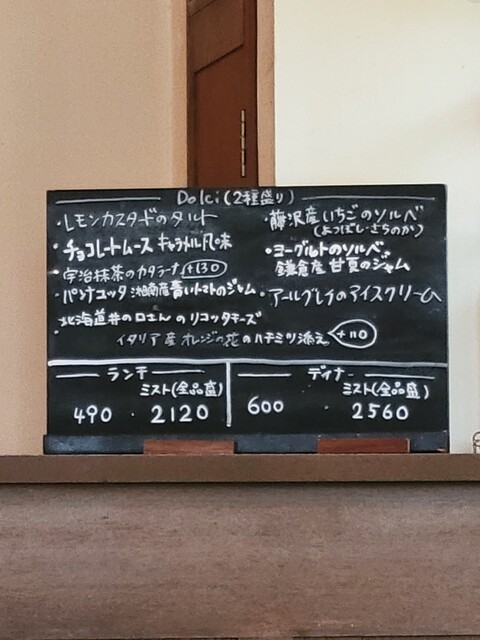 Dolci(2種盛り)
・レモンカスタードのタルト
・チョコレートムース キャラメル風味
・宇治抹茶のカタラーナ +130
・パンナコッタ 湘南産青いトマトのジャム
・北海道井の口さんのリコッタチーズ
イタリア産オレンジの花のハチミツ添え +110
・藤沢産いちごのソルベ
(よつぼし・きらのか)
・ヨーグルトのソルベ
鎌倉産 甘夏のジャム
・アールグレイのアイスクリーム
ランチ
ミスト(全品盛)
490 ・ 2120
ディナー
ミスト(全品盛)
600 ・ 2560